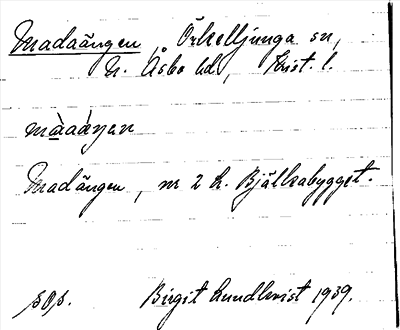 Madaängen, Örkelljunga sn,
N. Åsbo hd, Krist. l.
Madängen, nr 2 h. Bjälkabygget.
sOs. Birgit Lundkvist 1939.